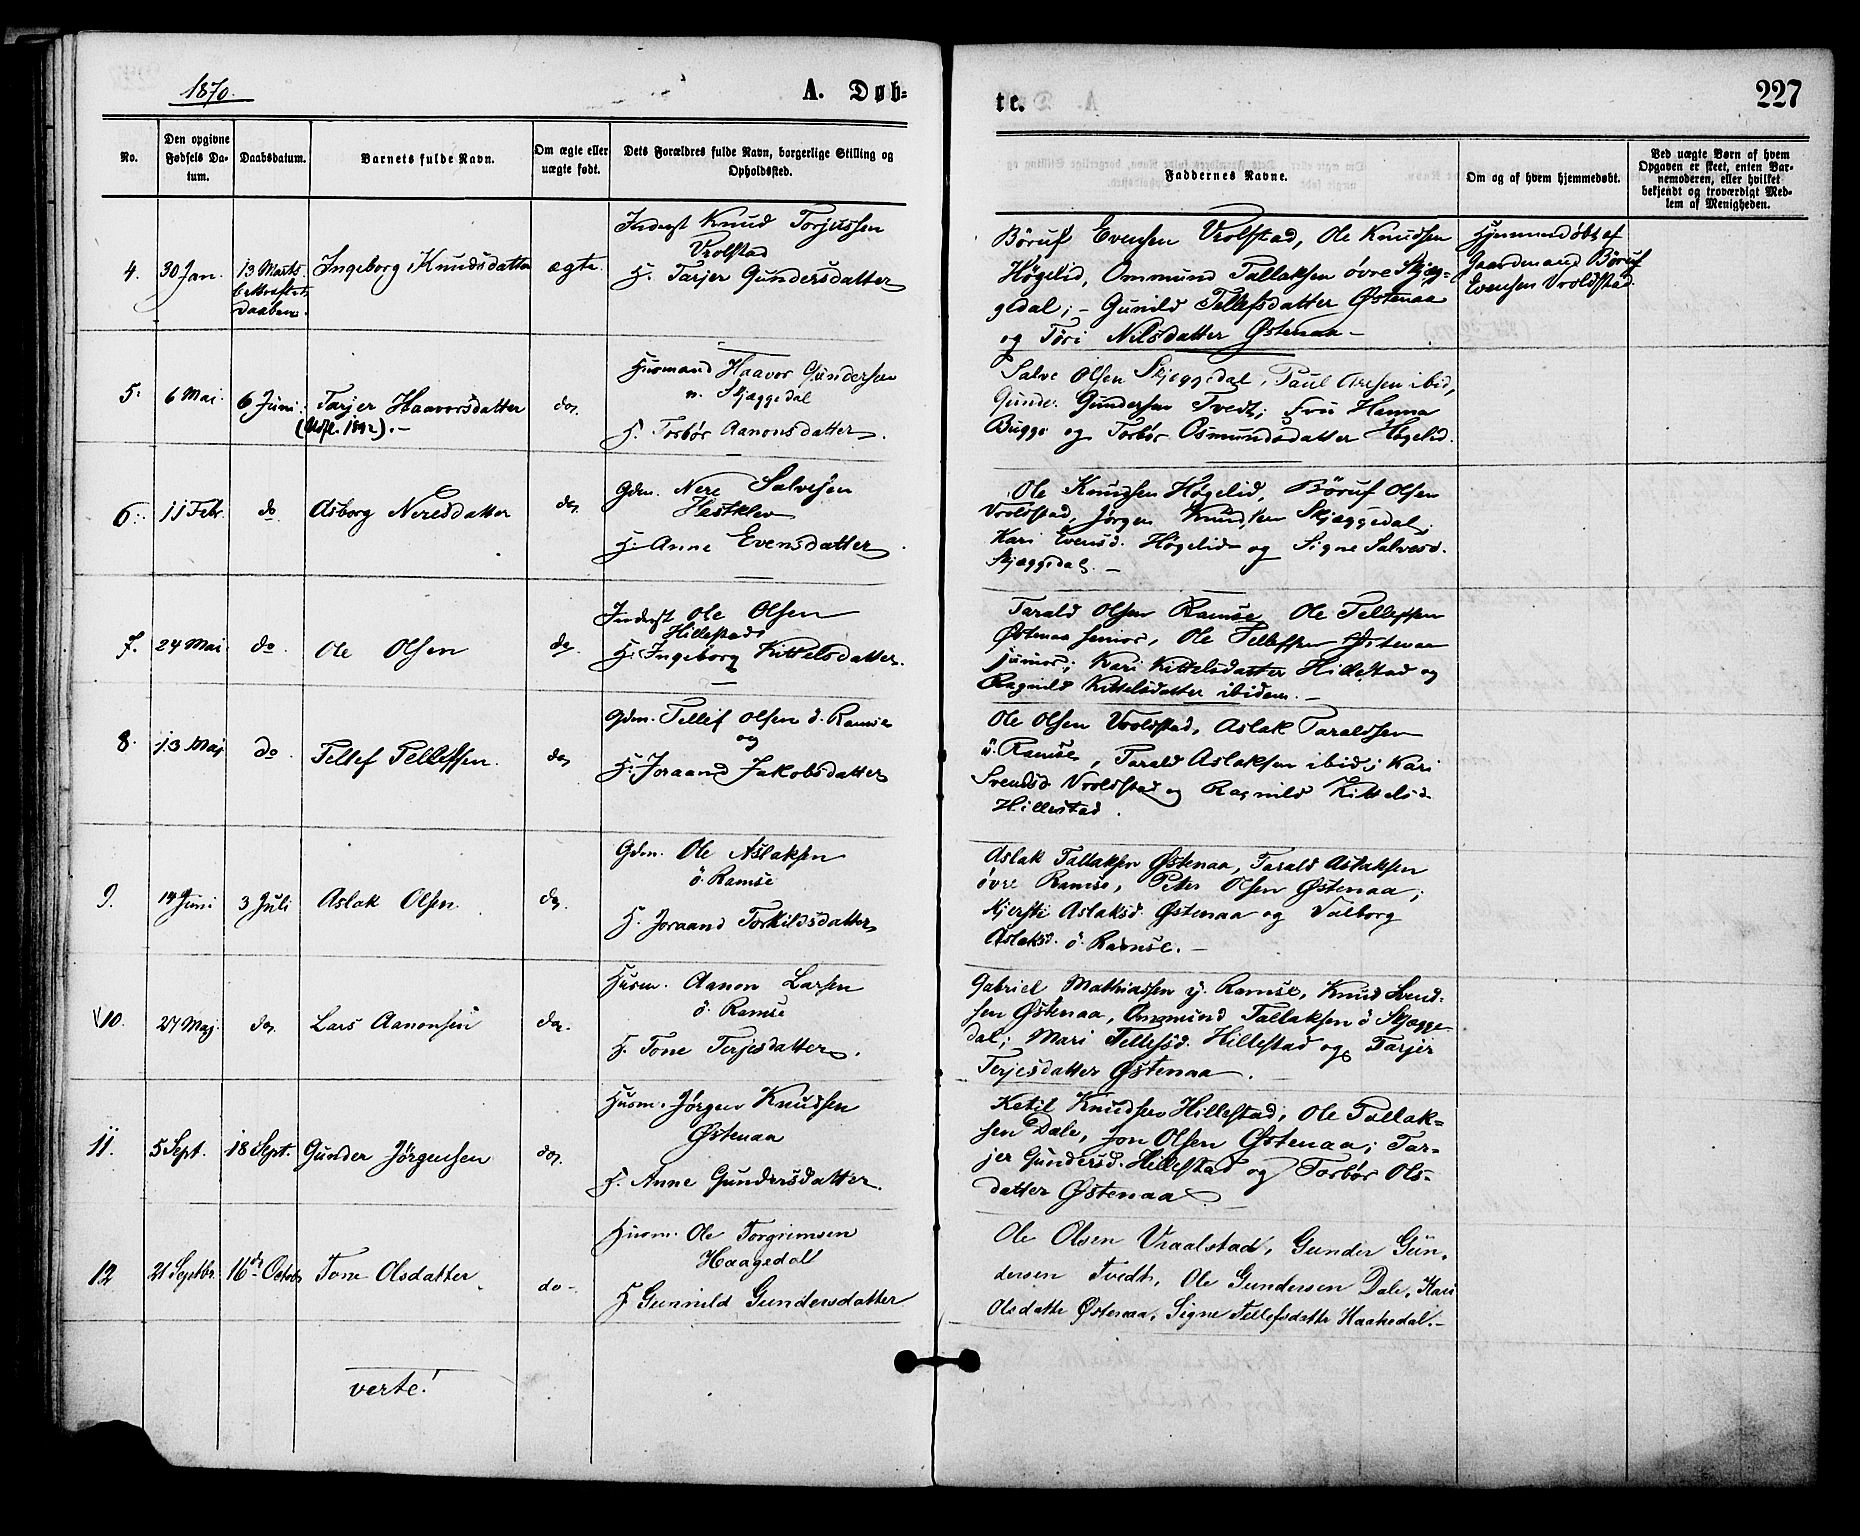 1870.
A. Døb=
te.
227
No.
Den opgivne Fødsels Datum.
Daabsdatum.
Barnets fulde Navn.
Om ægte eller uægte født.
Dets Forældres fulde Navn, borgerlige Stilling og Opholdssted.
Faddernes Navne.
Om og af hvem hjemmedøbt.
Ved uægte Børn af hvem Opgaven er skeet, enten Barnemoderen, eller hvilket bekjendt og troværdigt Medlem af Menigheden.
4. 30 Jan. 13 Marts
bekræftet
Daaben.
Ingeborg Knudsdatter
ægte.
Inderst Knud Torjussen
Vrolstad
H. Tarjer Gundersdatter
Böruf Evensen Vrolstad, Ole Knudsen
Høgelid, Ommund Tallaksen øvre Skjæg-
gedal; - Gunild Tellefsdatter Østenaa
og Töri Nilsdatter Østenaa -
Hjemmedøbt af
Gaardmand Böruf
Evensen Vroldstad.
5. 6 Mai. 6 Juni. Tarjer Haavorsdatter
do.
Husmand Haavor Gundersen
n. Skjæggedal
H. Torbör Aanonsdatter.
Salve Olsen Skjeggedal, Paul Aresen ibid,
Gunder Gundersen Tvedt; Fru Hanna
Bugge og Torbör Osmundsdatter Høgelid.
6. 11 Febr. do Asborg Neresdatter
do.
Gdm. Nere Salvesen
Hestklev
H. Anne Evensdatter
Ole Knudsen Høgelid, Böruf Olsen
Vroldstad, Jørgen Knudsen Skjæggedal;
Kari Evensd. Høgelid og Signe Salvesd.
Skjæggedal. -
7. 24 Mai do. Ole Olsen
do
Inderst Ole Olsen
Hillestad
H. Ingeborg Kittelsdatter.
Tarald Olsen Ramse, Ole Tellefsen
Østenaa senior, Ole Tellefsen Østenaa
junior; Kari Kittelsdatter Hillestad og
Ragnild Kittelsdatter ibidem. -
8. 13 Maj do. Tellef Tellefsen.
do.
Gdm. Tellef Olsen ö. Ramse
og
H. Joraand Jakobsdatter
Ole Olsen Vroldstad, Aslak Taraldsen
ö. Ramse, Tarald Aslaksen ibid; Kari
Svendsd. Vroldstad og Ragnild Kittelsd.
Hillestad.
9. 14 Juni 3 Juli Aslak Olsen.
do.
Gdm. Ole Aslaksen
ö. Ramse
H. Joraand Torkildsdatter
Aslak Tallaksen Østenaa, Tarald Aslaksen
övre Ramse, Peter Olsen Østenaa;
Kjersti Aslaksd. Østenaa og Valborg
Aslaksd. ö. Ramse. -
10. 27 Maj. do. Lars Aanonsen
do.
Husm. Aanon Larsen
ö. Ramse
H. Tone Terjesdatter.
Gabriel Mathiassen y. Ramse, Knud Svend-
sen Østenaa, Ommund Tallaksen ö Skjægge
dal; Mari Tellefsd. Hillestad og Tarjer
Terjesdatter Østenaa.
11. 5 Sept. 18 Sept. Gunder Jörgensen
do.
Husm. Jörgen Knudsen
Østenaa
H. Anne Gundersdatter.
Ketil Knudsen Hillestad, Ole Tallak-
sen Dale, Jon Olsen Østenaa; Tar-
jer Gundersd. Hillestad og Torbör Ols-
datter Østenaa.
12 21 Septbr. 16de Octob Tone Olsdatter
do-
Husm. Ole Torgrimsen
Haagedal
H Gunnild Gundersdatter
Ole Olsen Vraalstad, Gunder Gün-
dersen Tvedt, Ole Gundersen Dale, Kari
Olsdatter Østenaa, Signe Tellefsdatter Haakedal. -
verte!